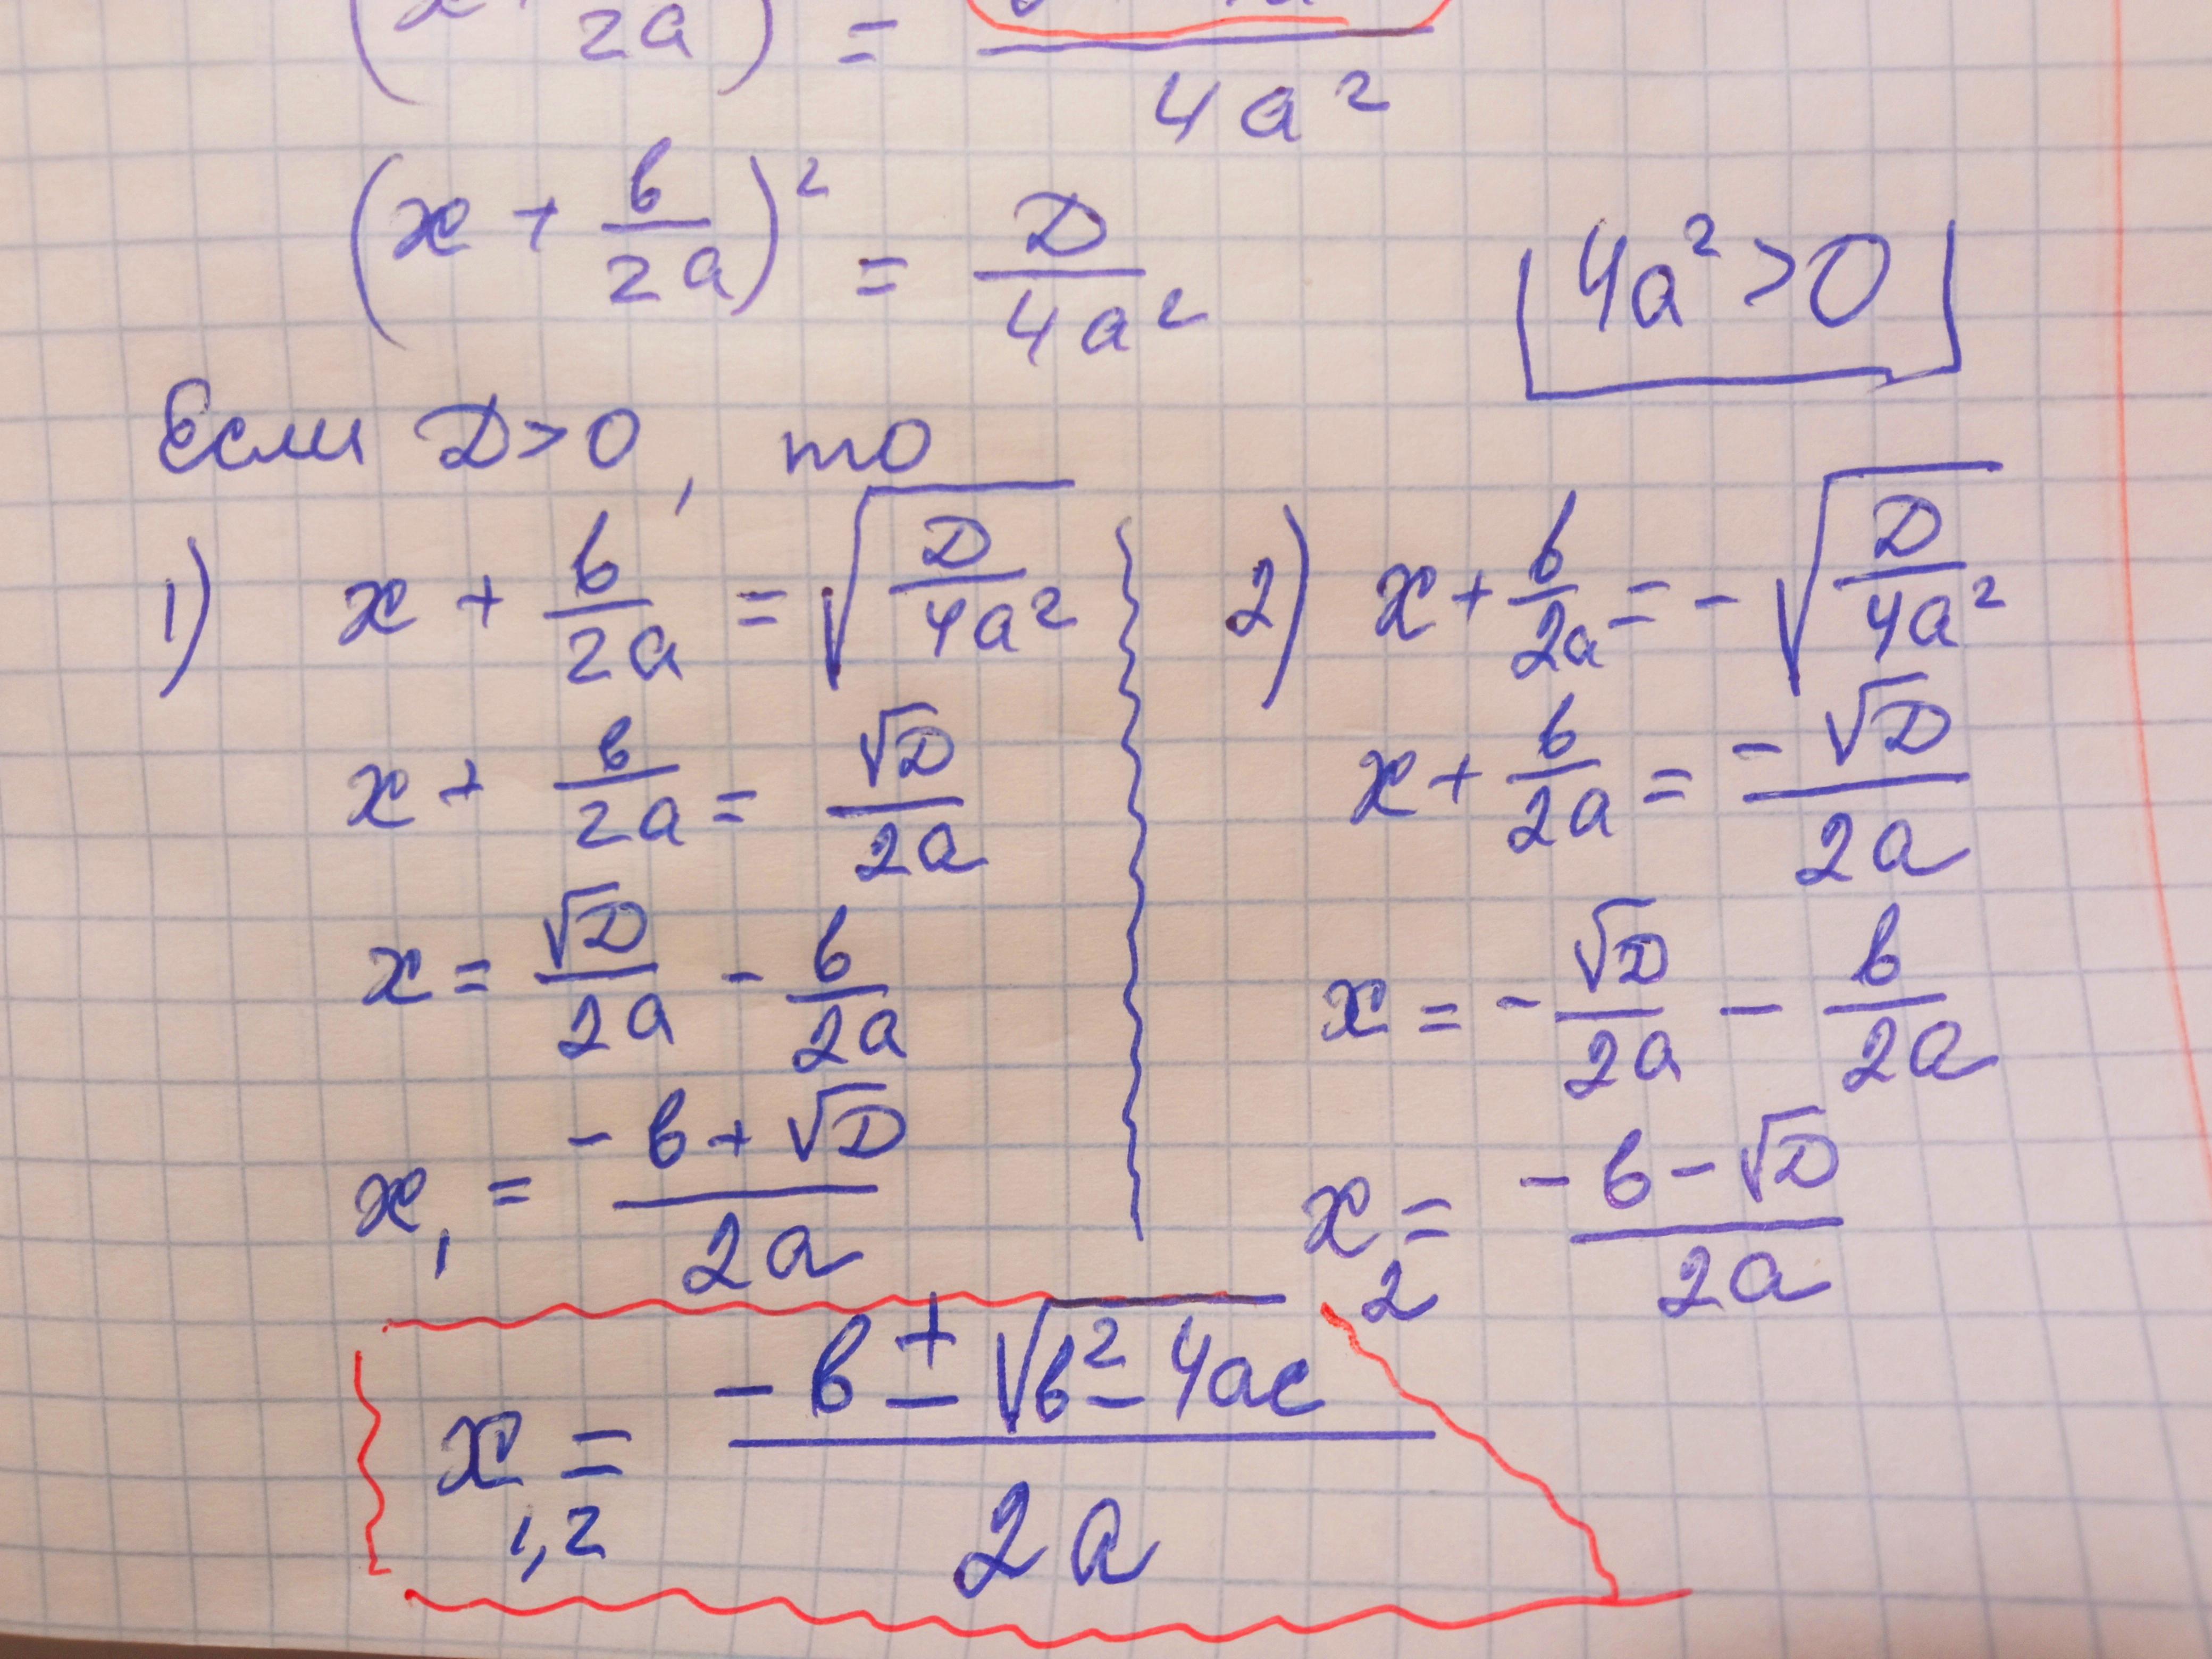 (x + / 2a) = / 4a²
(x + b/2a)² = D/4a²
4a² > 0
Если D > 0, то
1) x + b/2a = √(D/4a²)
x + b/2a = √D/2a
x = √D/2a - b/2a
x₁ = (-b + √D)/2a
2) x + b/2a = -√(D/4a²)
x + b/2a = -√D/2a
x = -√D/2a - b/2a
x₂ = (-b - √D)/2a
x₁,₂ = (-b ± √(b² - 4ac))/2a